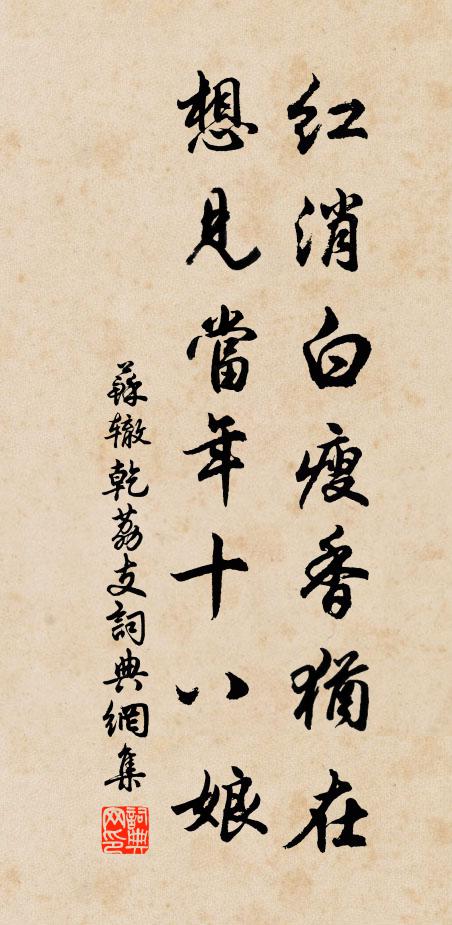 红消白瘦香猶在
想見當年十八娘
蘇辙乾荔支詞典網集
詞典
网印